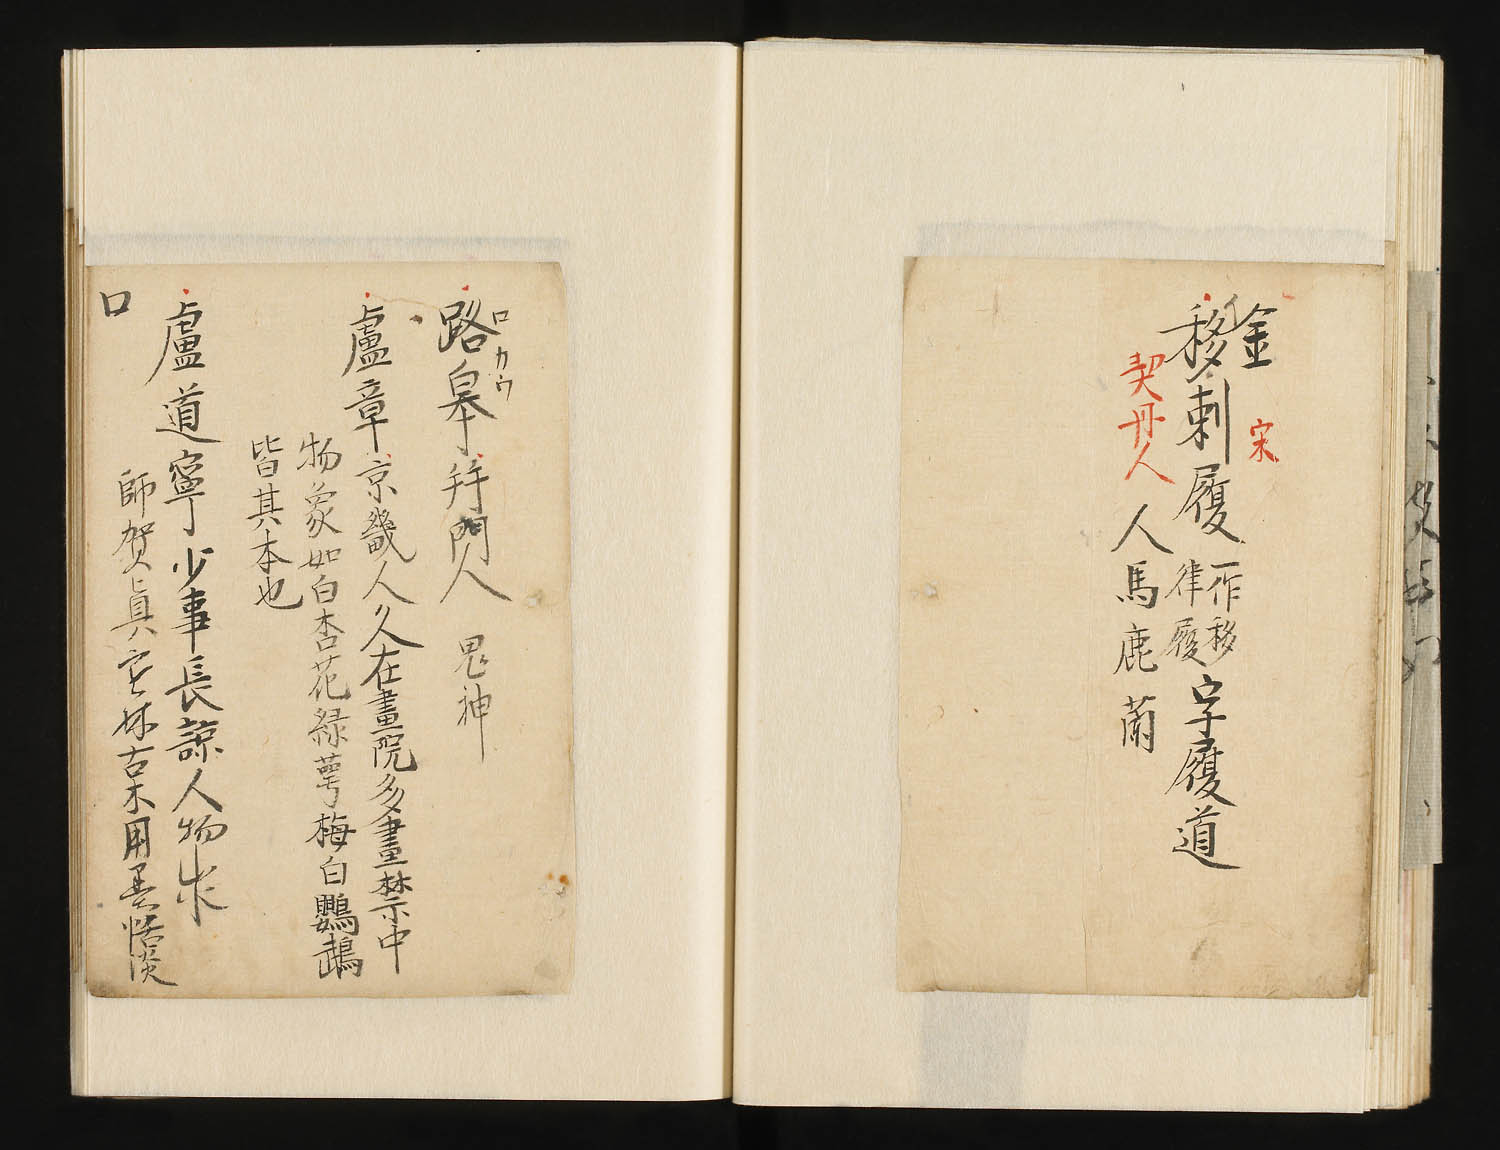 金
宋
イ
移剌履
一作移
律履
字履道
契丹人
人馬鹿蕳
路皋
ロ
カウ
幷門人
鬼神
盧章
京畿人久在畫院多畫禁中
物象如白杏花緑萼梅白鸚鵡
皆其本也
盧道寧
少事長諒人物
師賀真
古木用墨恬淡
口